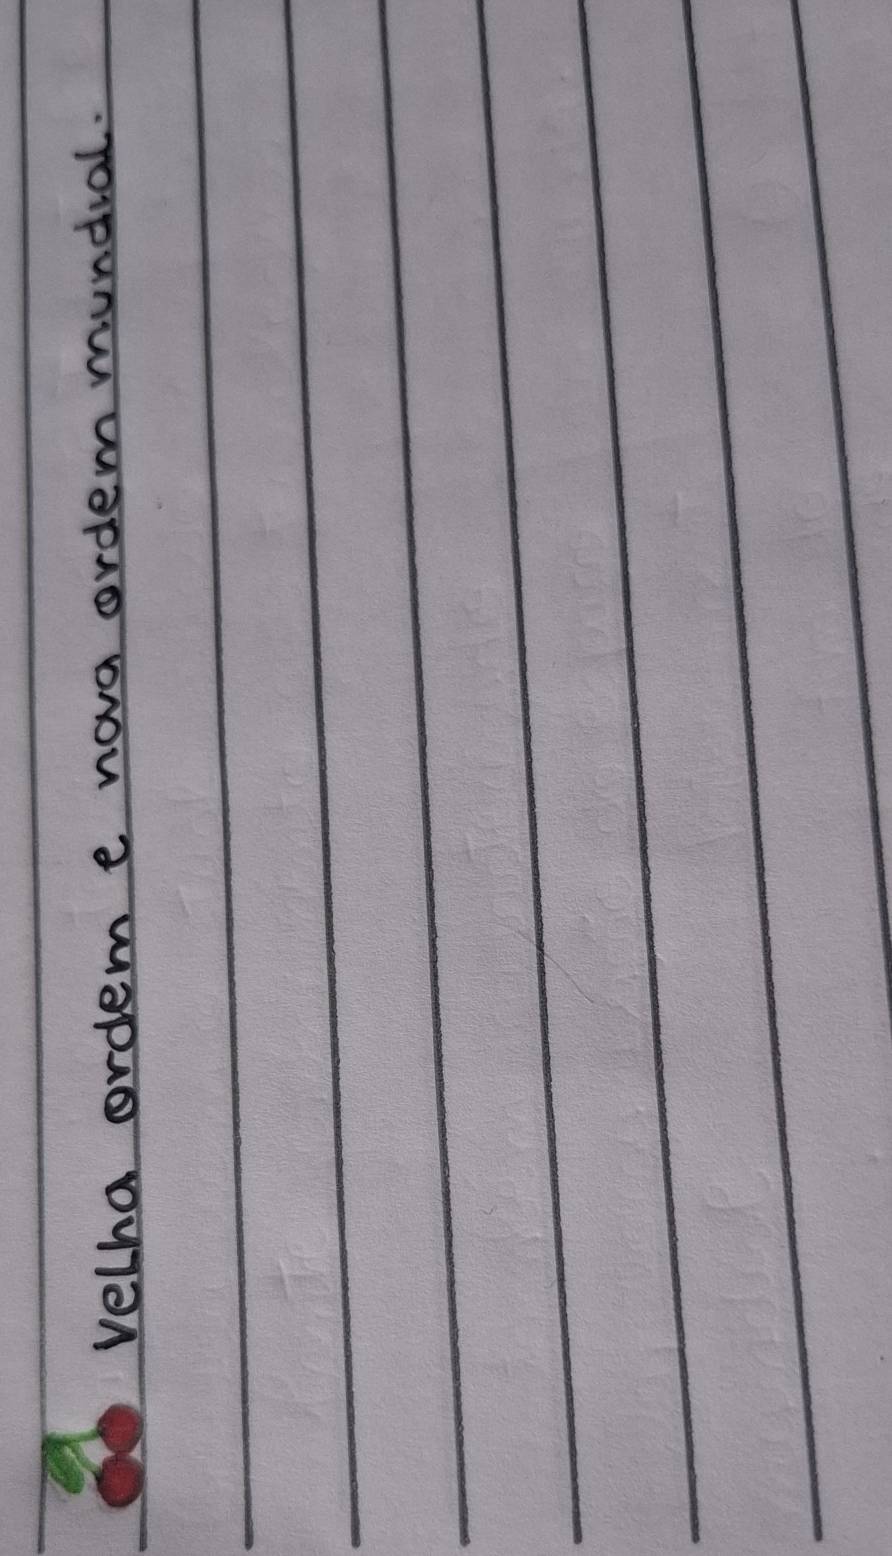 velha ordem e nova ordem mundial.